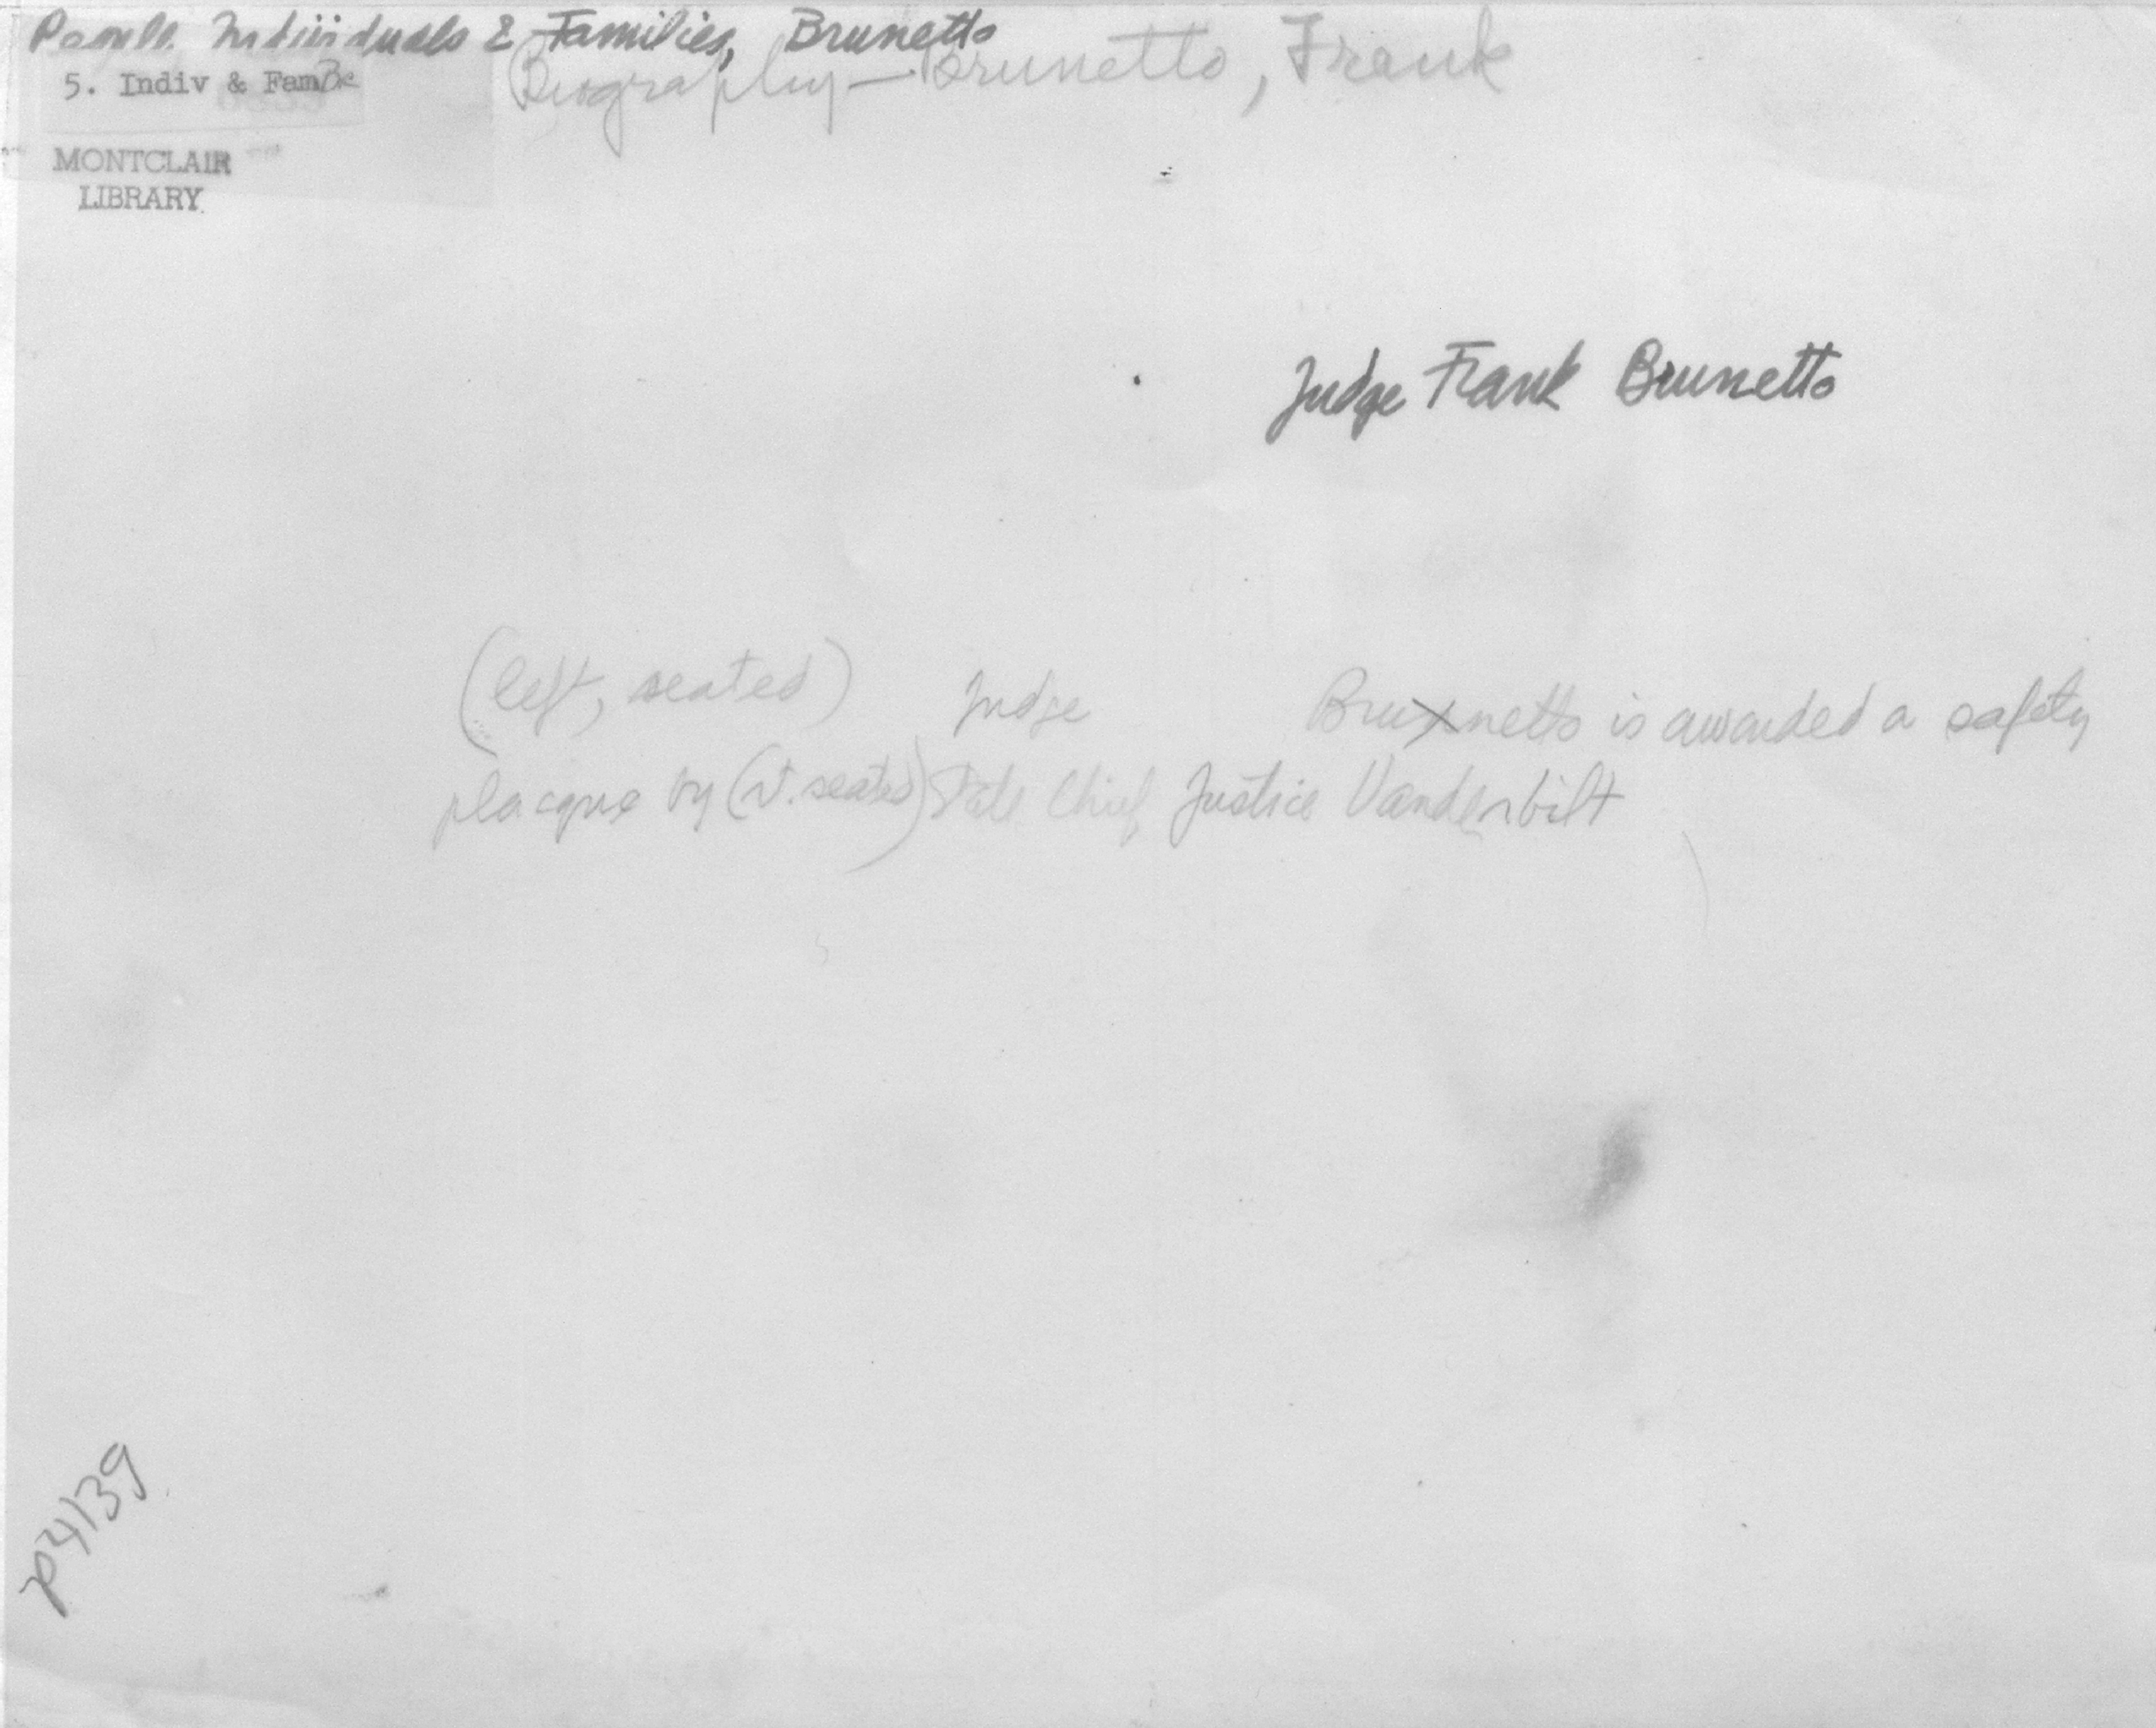 People. Individuals & Families, Brunetto
Biography — Brunetto, Frank
5. Indiv & Fam Br
MONTCLAIR
LIBRARY
Judge Frank Brunetto
(left, seated) Judge Brunetto is awarded a safety
placque by (rt. seated) State Chief Justice Vanderbilt
P4139